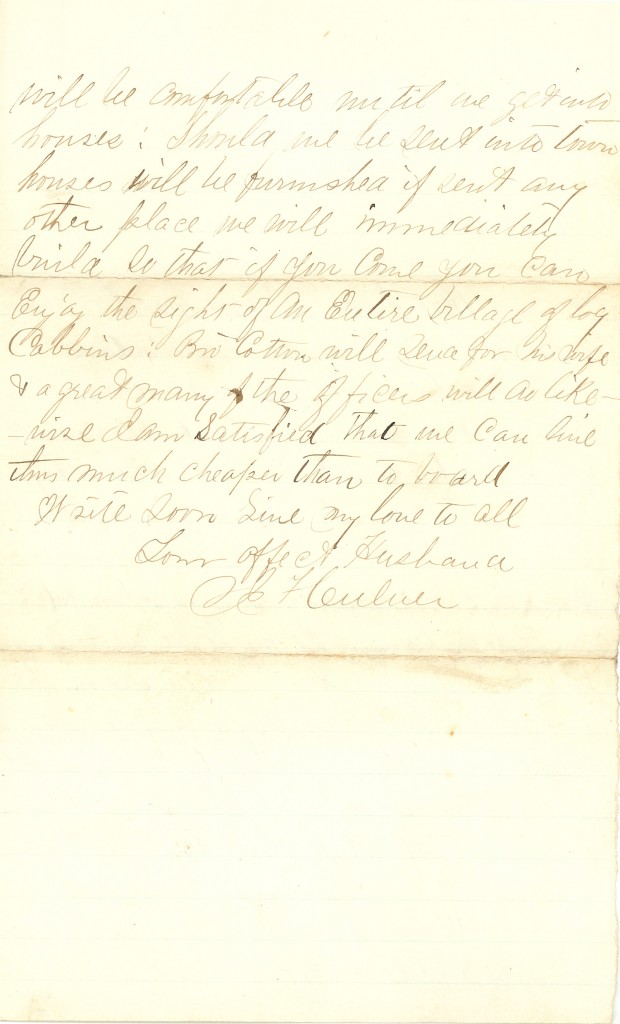 will be comfortable until we get into
houses: Should we be sent into town
houses will be furnished if sent any
other place we will immediately
build so that if you Come you Can
Enjoy the sight of an Entire village of log
Cabbins: Bro Cotton will send for his wife
& a great many of the officers will do like-
-wise I am Satisfied that we can live
thus much cheaper than to board
Write Soon Give my love to all
Your affect Husband
J F Culver